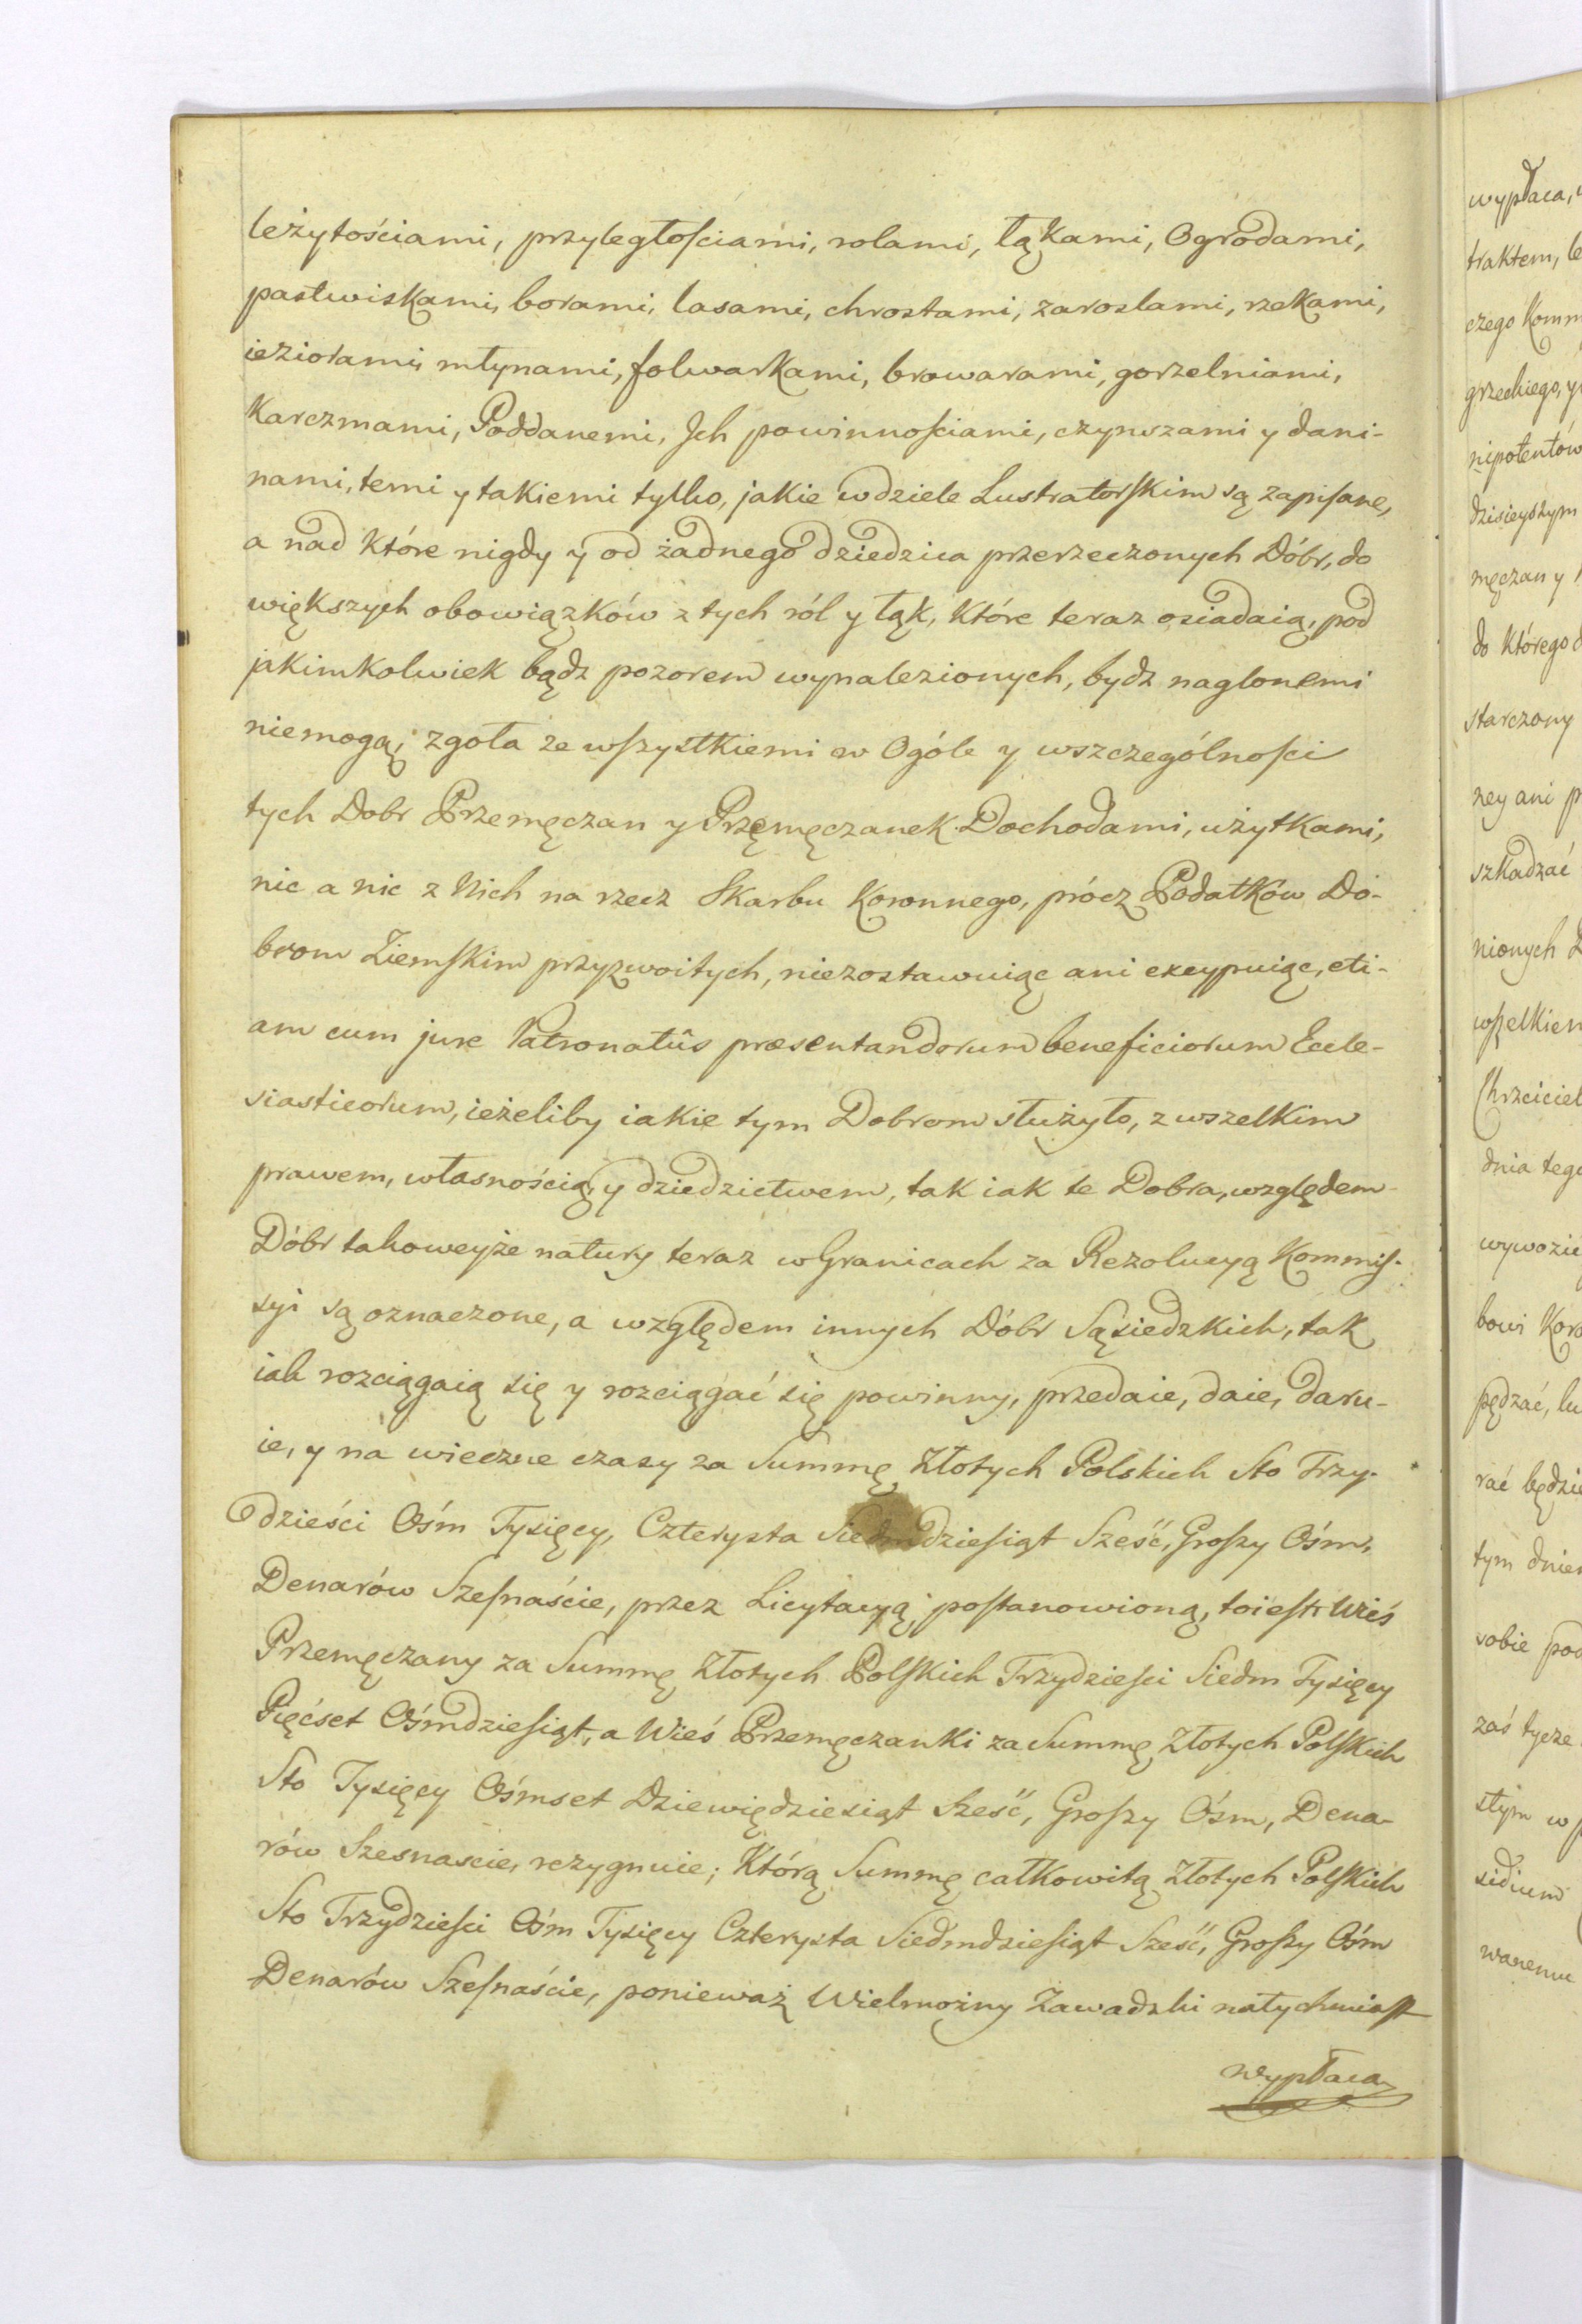 leżytościami, przyległościami, rolami, łąkami, Ogrodami,
pastwiskami, borami, lasami, chrostami, zaroslami, rzekami,
ieziorami, młynami, folwarkami, browarami, gorzelniami,
Karczmami, Poddanemi, Jch powinnościami, czynszami y dani-
nami, temi y takiemi tylko, jakie w dziele Lustratorskim są zapisane,
a nad które nigdy y od żadnego dziedzica przerzeczonych Dóbr, do
większych obowiązków z tych ról y łąk, które teraz osiadaią, pod
jakimkolwiek bądz pozorem wynalezionych, bydz naglonemi
niemogą, zgoła ze wszystkiemi w Ogóle y wszczególności
tych Dobr Przemęczan y Przęmęczanek Dochodami, użytkami,
nic a nic z Nich na rzecz Skarbu Koronnego, prócz Podatków Do-
brom Ziemskim przyzwoitych, niezostawuiąc ani excypuiąc, eti-
am cum jure Patronatûs præsentandorum beneficiorum Eccle-
siasticorum, ieżeliby iakie tym Dobrom służyło, z wszelkim
prawem, własnością, y dziedzictwem, tak iak te Dobra, względem
Dóbr takoweyże natury teraz w Granicach za Rezolucyą Kommis-
syi są oznaczone, a względem innych Dóbr Sąsiedzkich, tak
iak rozciągaią się y rozciągać się powinny, przedaie, daie, daru-
ie, y na wieczne czasy za Summę Złotych Polskich Sto Trzy-
dzieści Ośm Tysięcy, Czterysta Siedmdziesiąt Sześć, Groszy Ośm,
Denarów Szesnaście, przez Licytacyą postanowioną, toiest: Wieś
Przemęczany za Summę Złotych Polskich Trzydziesci Siedm Tysięcy
Pięćset Ośmdziesiąt, a Wieś Przemęczanki za Summę Złotych Polskich
Sto Tysięcy Ośmset Dziewiędziesiąt Sześć, Groszy Ośm, Dena-
rów Szesnascie, rezygnuie; Którą Summę całkowitą Złotych Polskich
Sto Trzydziesci Ośm Tysięcy Czterysta Siedmdziesiąt Sześć, Groszy Ośm
Denarów Szesnaście, ponieważ Wielmożny Zawadzki natychmiast
wypłaca
wypłaca,
traktem,
czego
grzeckiego,
nipotentów
dzisieyszym
męczan y
do którego
starczony
ney ani
szkadzać
nionych
wszelkiem
Chrzciciel
dnia
bowi
pędzać, lu
rać będzie
tym dniem
sobie
zaś tycze
stym w
sidium
wanemu